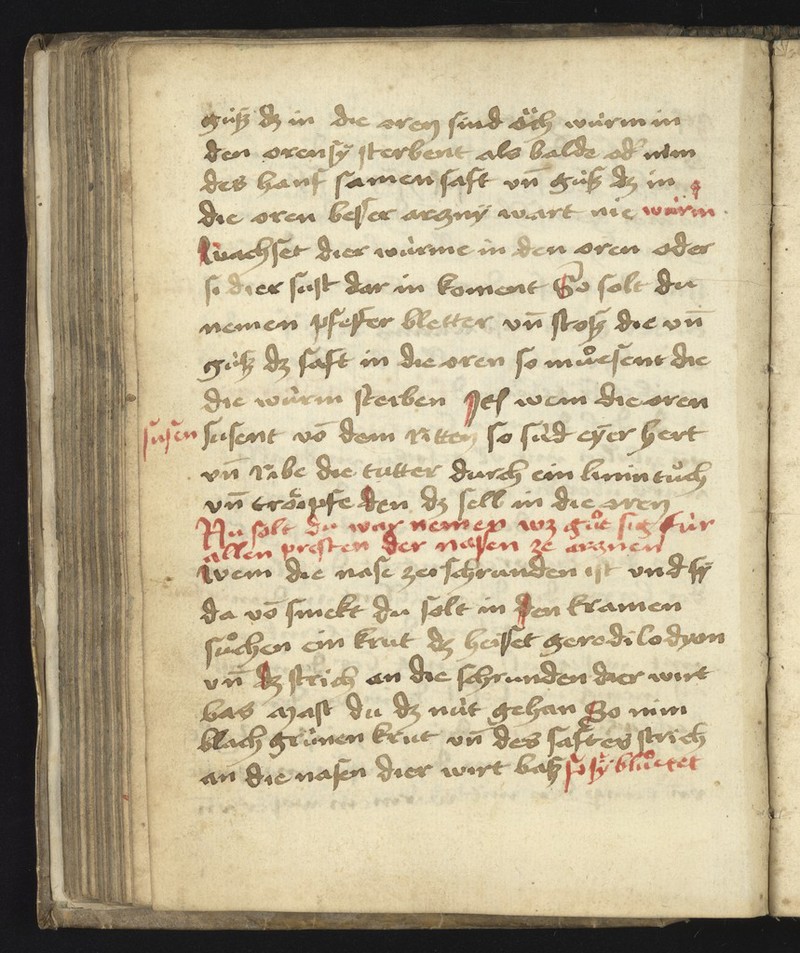 güß dz in die oren sind öch würm in
den oren sÿ sterbent als balde od' nim
des hanf samen saft vn̄ güß dz in
die oren besser arzny wart nie würm
Wachset dier würme in den oren oder
si dier sust dar in koment So solt du
nemen pfeffer bletter vn̄ stosß die vn̄
güß dz saft in die oren so muͦesent die
die würm sterben Jt wem die oren
susen susent vō dem ritten so süd eyer hert
vn̄ ribe die tutter durch ein linin tuͦch
vn̄ tröipfe den dz sell in die oren
Nu solt du war nemen wz guͦt sig für
allen presten der nasen ze arznen
Wem die nase zerschrunden ist vnd sÿ
da vō smekt du solt in den kramen
suͦchen ein krut dz heisset gerodilodyon
vn̄ dz strich an die schrunden dier wirt
bas Mast du dz nüt gehan So nim
blach grünen krut vn̄ des saftes strich
an die nasen dier wirt baß so sÿ bluͦetet